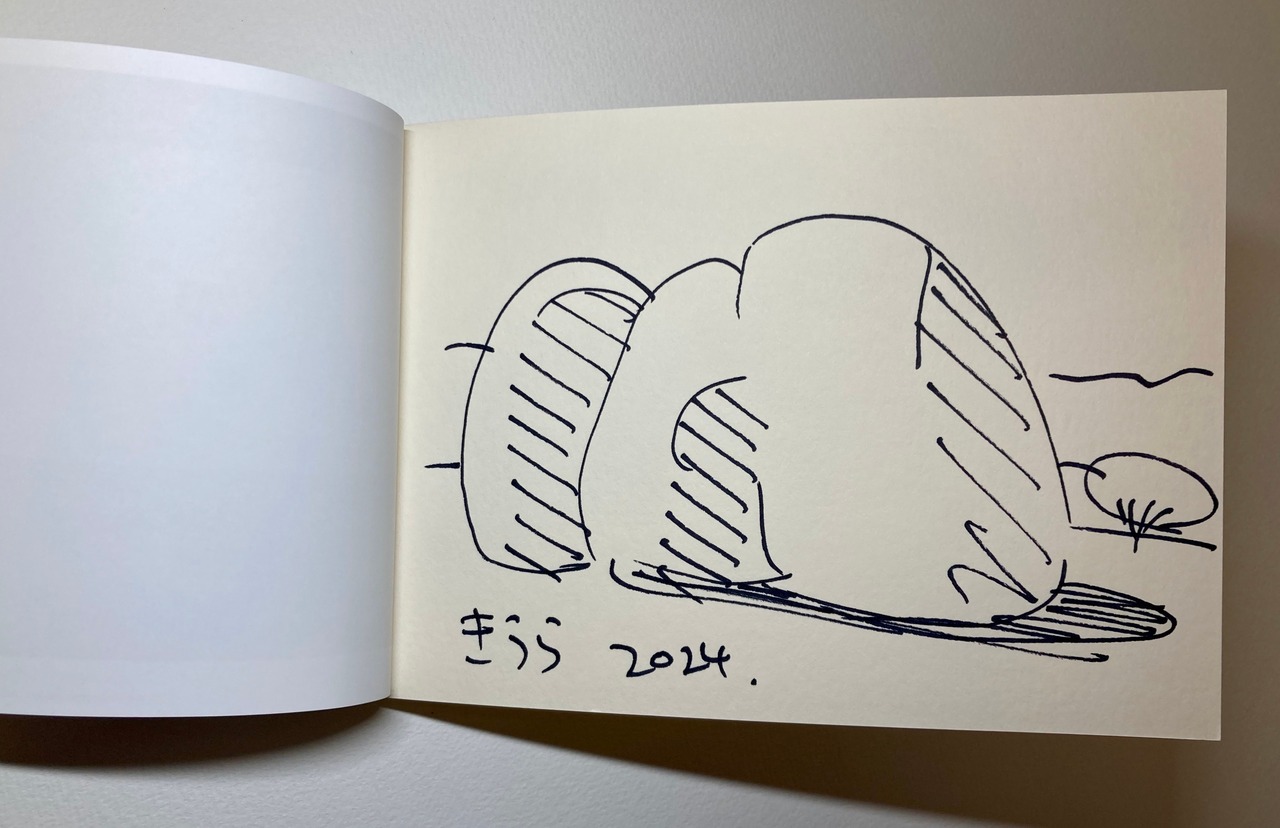 きうら 2024.